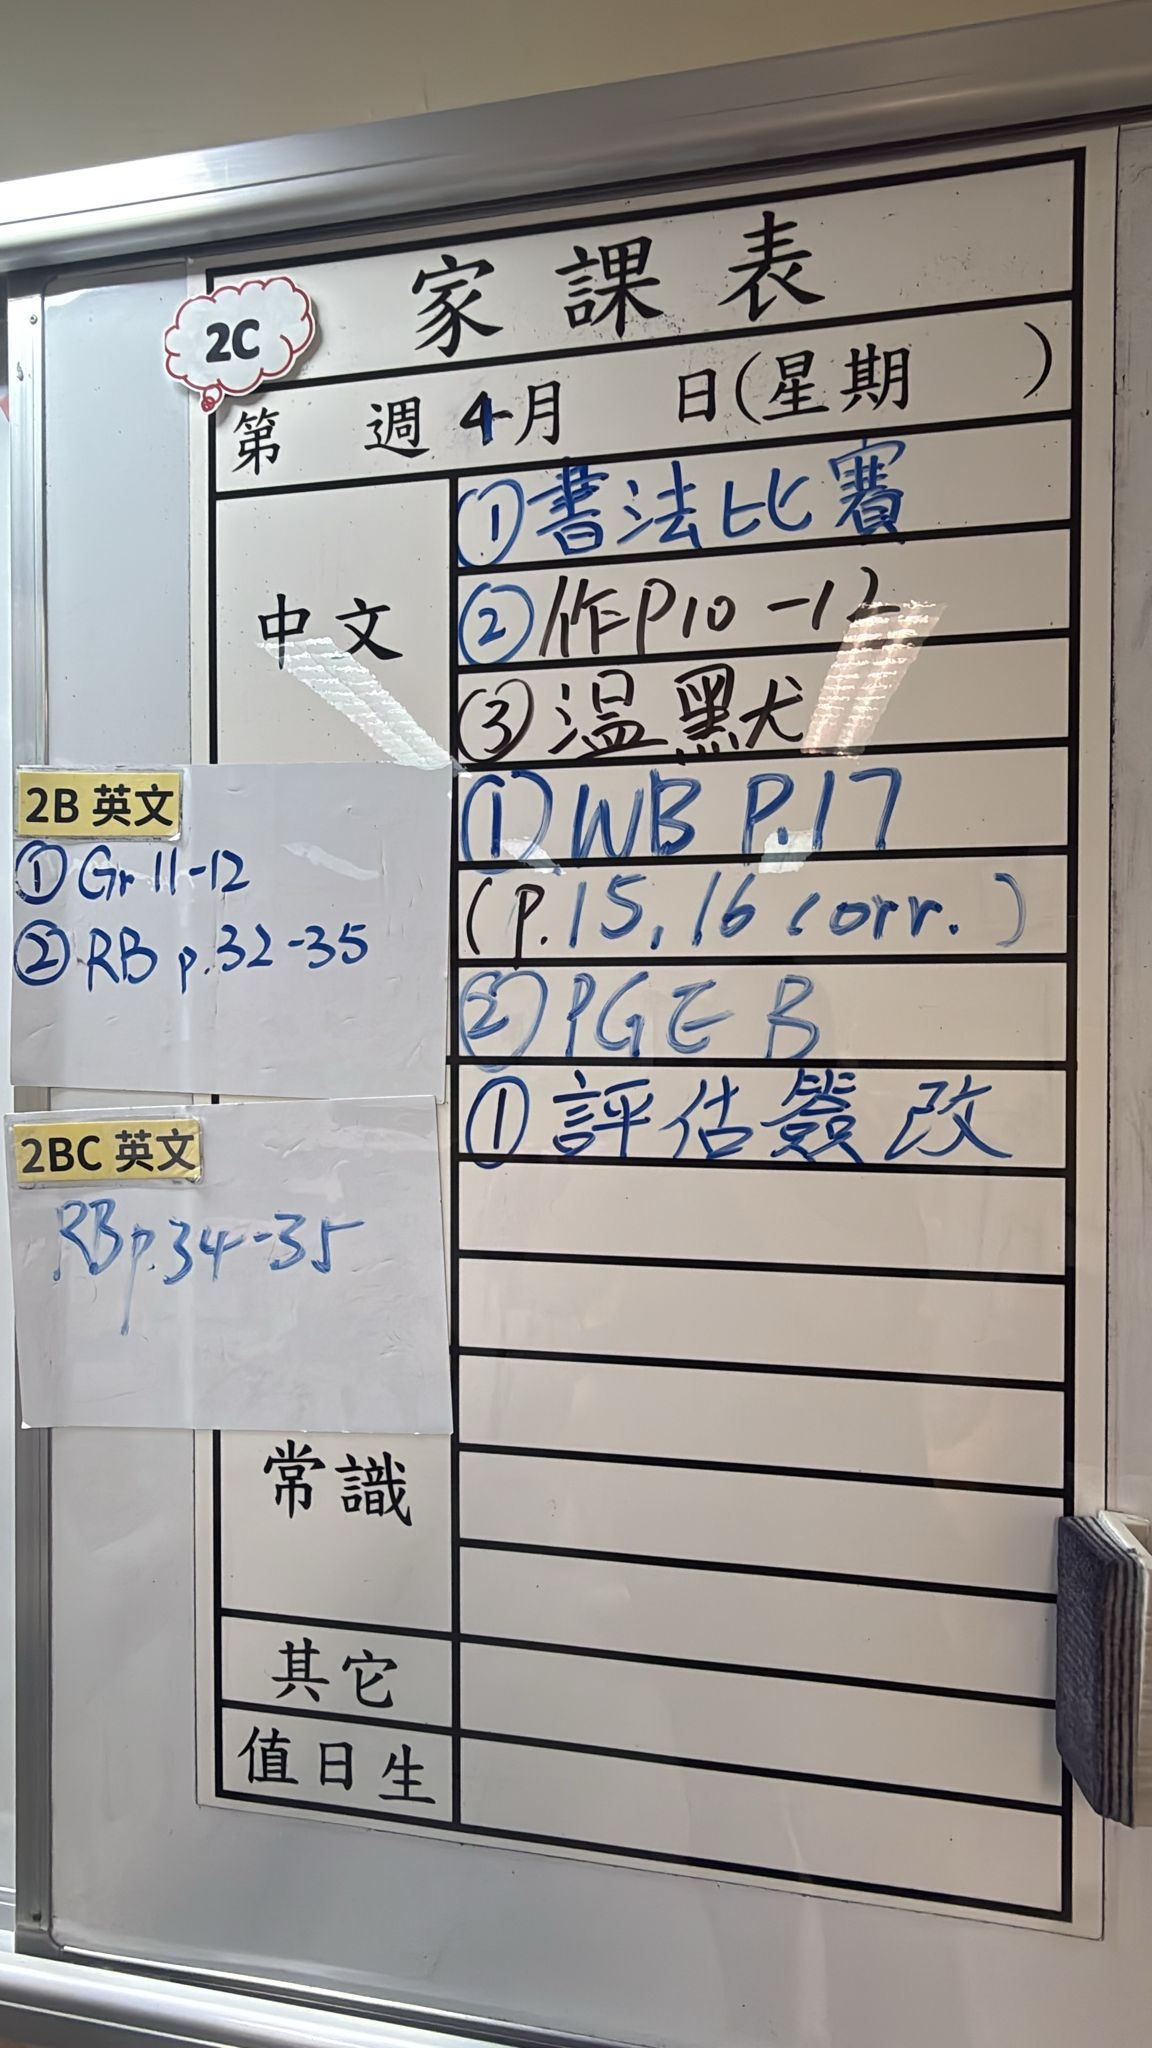 家課表
2C
第 週 4月 日(星期 )
中文
①書法比賽
②作P10-12
③温默
2B 英文
①Gr 11-12
②RB p.32-35
①WB P.17
(p.15,16 corr.)
②PGE B
2BC 英文
RB p.34-35
①評估簽改
常識
其它
值日生